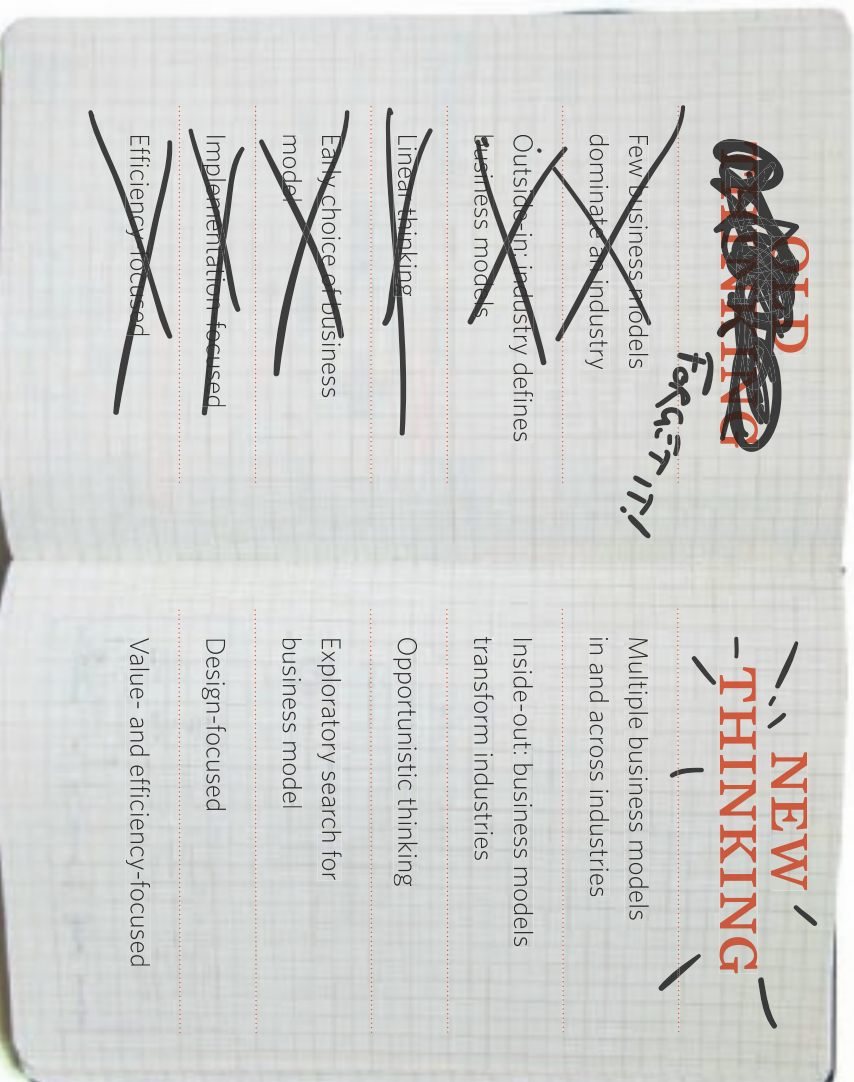 OLD
THINKING
FORGET IT!
Few business models
dominate an industry
Outside-in: industry defines
business models
Linear thinking
Early choice of business
model
Implementation-focused
Efficiency-focused
NEW
THINKING
Multiple business models
in and across industries
Inside-out: business models
transform industries
Opportunistic thinking
Exploratory search for
business model
Design-focused
Value- and efficiency-focused